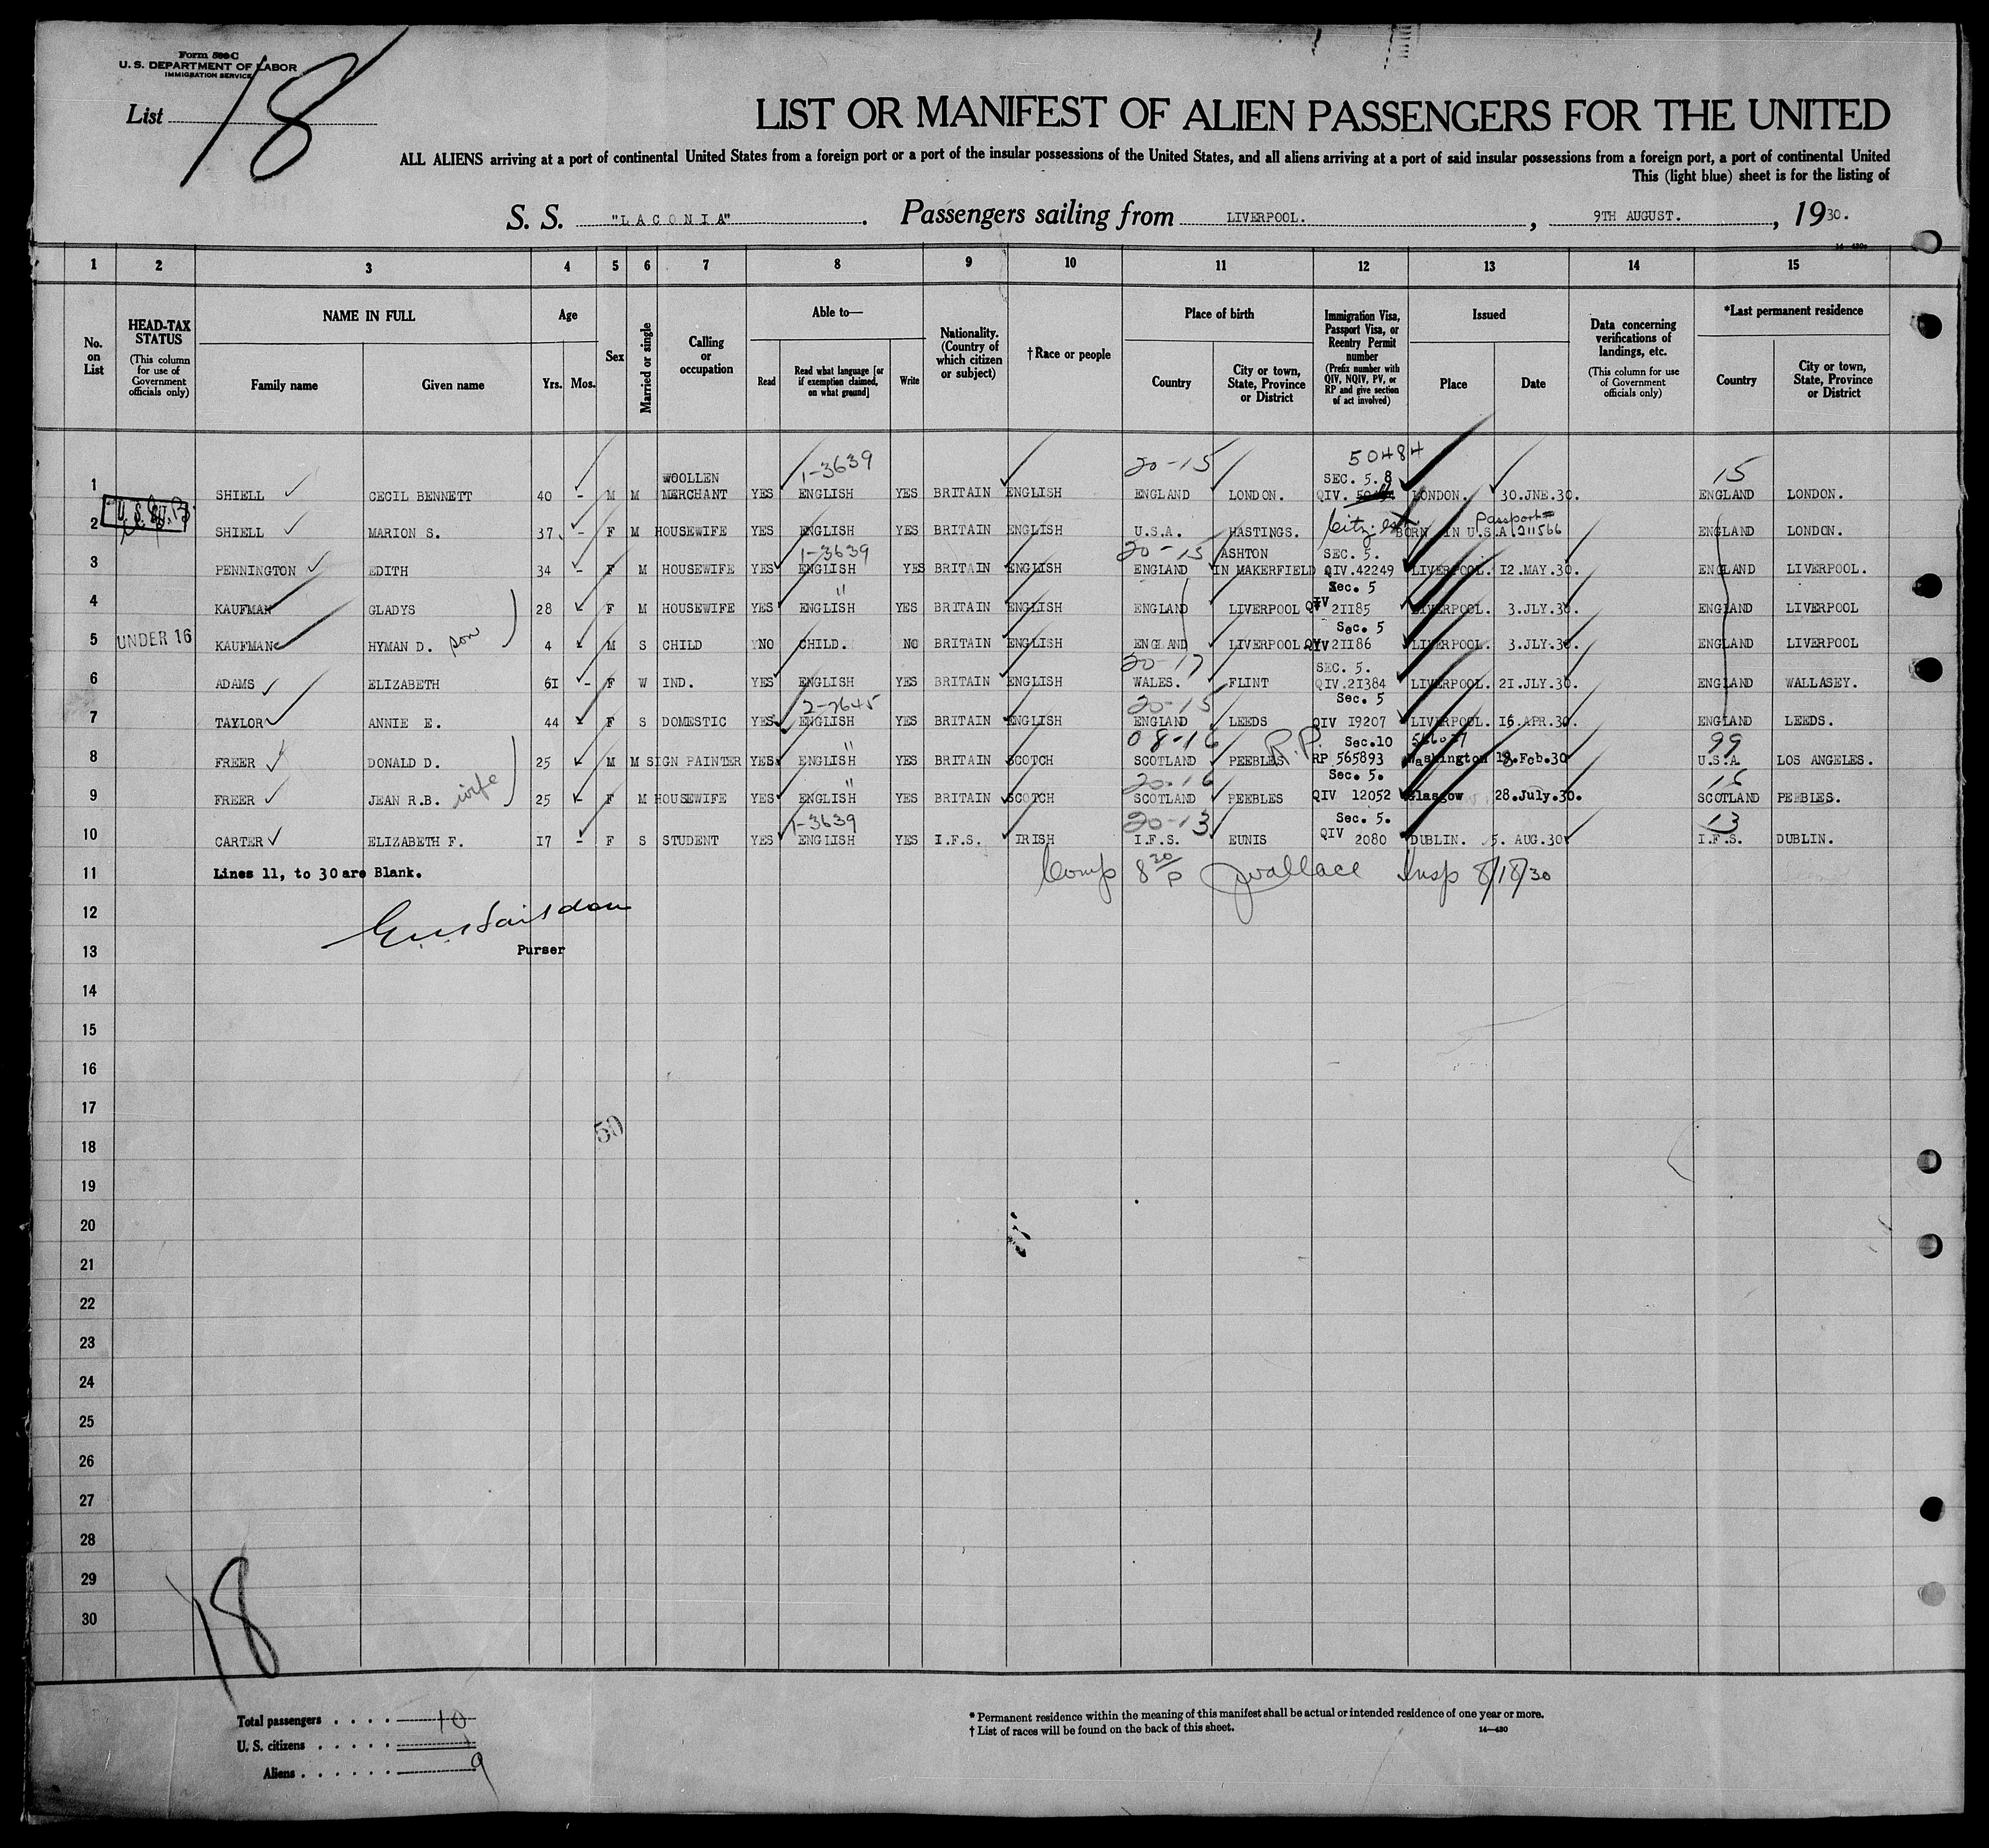 Form 500 C
U. S. DEPARTMENT OF LABOR
IMMIGRATION SERVICE
List 18
LIST OR MANIFEST OF ALIEN PASSENGERS FOR THE UNITED
ALL ALIENS arriving at a port of continental United States from a foreign port or a port of the insular possessions of the United States, and all aliens arriving at a port of said insular possessions from a foreign port, a port of continental United
This (light blue) sheet is for the listing of
S. S. "LACONIA" . Passengers sailing from LIVERPOOL. , 9TH AUGUST. , 1930.
14—430
1 2 3 4 5 6 7 8 9 10 11 12 13 14 15
No. on List
HEAD-TAX STATUS
(This column for use of Government officials only)
NAME IN FULL
Family name Given name
Age
Yrs. Mos.
Sex
Married or single
Calling or occupation
Able to—
Read
Read what language [or if exemption claimed, on what ground]
Write
Nationality. (Country of which citizen or subject)
†Race or people
Place of birth
Country
City or town, State, Province or District
Immigration Visa, Passport Visa, or Reentry Permit number
(Prefix number with QIV, NQIV, PV, or RP and give section of act involved)
Issued
Place Date
Data concerning verifications of landings, etc.
(This column for use of Government officials only)
*Last permanent residence
Country
City or town, State, Province or District
1-3639 20-15 50484 15
WOOLLEN SEC. 5. 8
1 SHIELL CECIL BENNETT 40 - M M MERCHANT YES ENGLISH YES BRITAIN ENGLISH ENGLAND LONDON. QIV. LONDON. 30.JNE.30. ENGLAND LONDON.
Passport
2 SHIELL MARION S. 37 - F M HOUSEWIFE YES ENGLISH YES BRITAIN ENGLISH U.S.A. HASTINGS. BORN IN U.S.A. 211566 ENGLAND LONDON.
1-3639 20-15 ASHTON SEC. 5.
3 PENNINGTON EDITH 34 - F M HOUSEWIFE YES ENGLISH YES BRITAIN ENGLISH ENGLAND IN MAKERFIELD QIV.42249 LIVERPOOL. 12.MAY.30. ENGLAND LIVERPOOL.
" Sec. 5
4 KAUFMAN GLADYS 28 F M HOUSEWIFE YES ENGLISH YES BRITAIN ENGLISH ENGLAND LIVERPOOL QIV 21185 LIVERPOOL. 3.JLY.30. ENGLAND LIVERPOOL
Sec. 5
UNDER 16
5 KAUFMAN HYMAN D. son 4 M S CHILD NO CHILD. NO BRITAIN ENGLISH ENGLAND LIVERPOOL QIV 21186 LIVERPOOL. 3.JLY.30. ENGLAND LIVERPOOL
20-17 SEC. 5.
6 ADAMS ELIZABETH 61 - F W IND. YES ENGLISH YES BRITAIN ENGLISH WALES. FLINT QIV.21384 LIVERPOOL. 21.JLY.30. ENGLAND WALLASEY.
2-2645 20-15 Sec. 5
7 TAYLOR ANNIE E. 44 - F S DOMESTIC YES ENGLISH YES BRITAIN ENGLISH ENGLAND LEEDS QIV 19207 LIVERPOOL. 16.APR.30. ENGLAND LEEDS.
" 08-16 R.P. Sec.10 99
8 FREER DONALD D. 25 M M SIGN PAINTER YES ENGLISH YES BRITAIN SCOTCH SCOTLAND PEEBLES RP 565893 Washington 18.Feb.30 U.S.A. LOS ANGELES.
" 20-16 Sec. 5. 16
9 FREER JEAN R.B. wife 25 - F M HOUSEWIFE YES ENGLISH YES BRITAIN SCOTCH SCOTLAND PEEBLES QIV 12052 Glasgow 28.July.30. SCOTLAND PEEBLES.
1-3639 20-13 Sec. 5. 13
10 CARTER ELIZABETH F. 17 - F S STUDENT YES ENGLISH YES I.F.S. IRISH I.F.S. EUNIS QIV 2080 DUBLIN. 5. AUG.30 I.F.S. DUBLIN.
11 Lines 11, to 30 are Blank. Comp 8 30/P Wallace Insp 8/18/30
12
13 Purser
14
15
16
17
50
18
19
20
21
22
23
24
25
26
27
28
29
30
18
Total passengers . . . . 10
U. S. citizens . . . . . 1
Aliens . . . . . . 9
* Permanent residence within the meaning of this manifest shall be actual or intended residence of one year or more.
† List of races will be found on the back of this sheet. 14—430